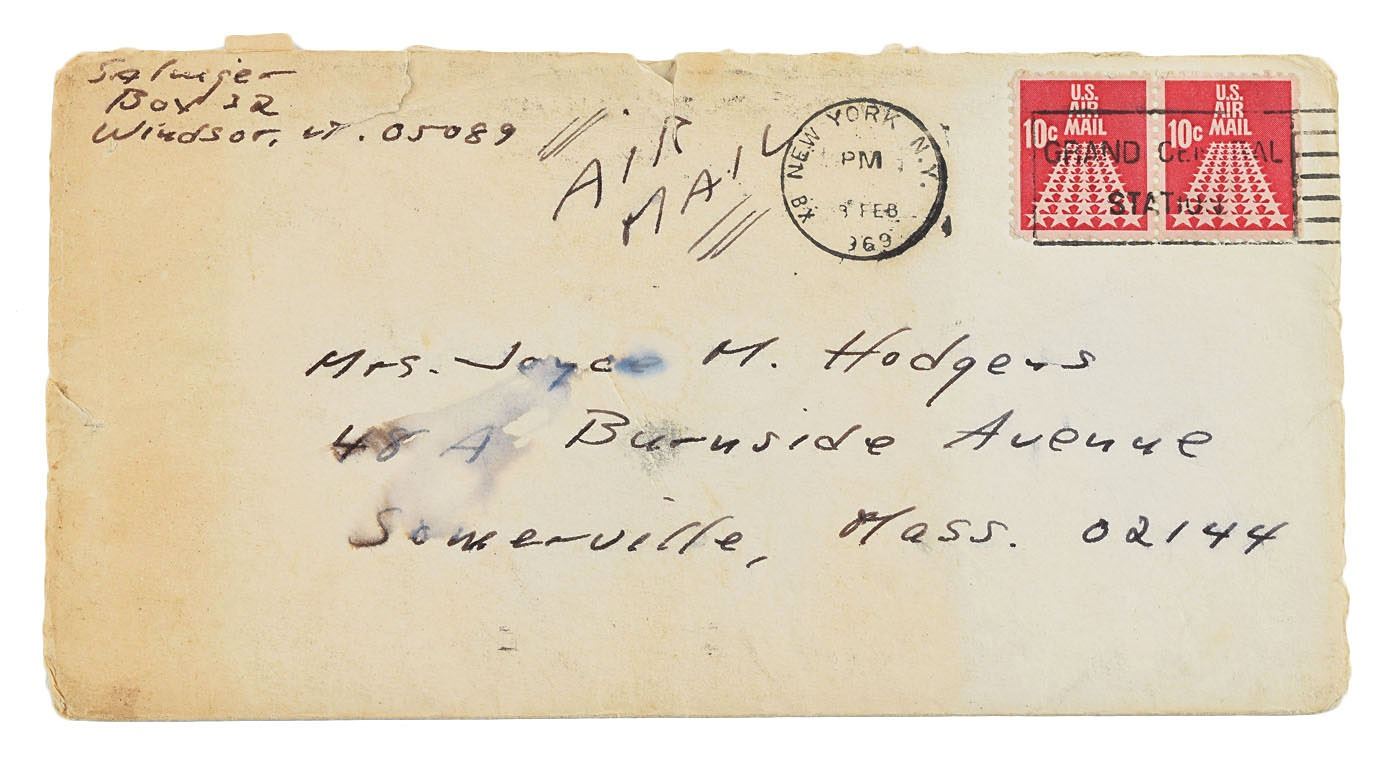 Salinger
Box 32
Windsor, VT. 05089
AIR
MAIL
NEW YORK N.Y.
PM
FEB
1969
U.S.
AIR
MAIL
10c
U.S.
AIR
MAIL
10c
GRAND CENTRAL
STATION
Mrs. Joyce M. Hodgers
48 A Burnside Avenue
Somerville, Mass. 02144